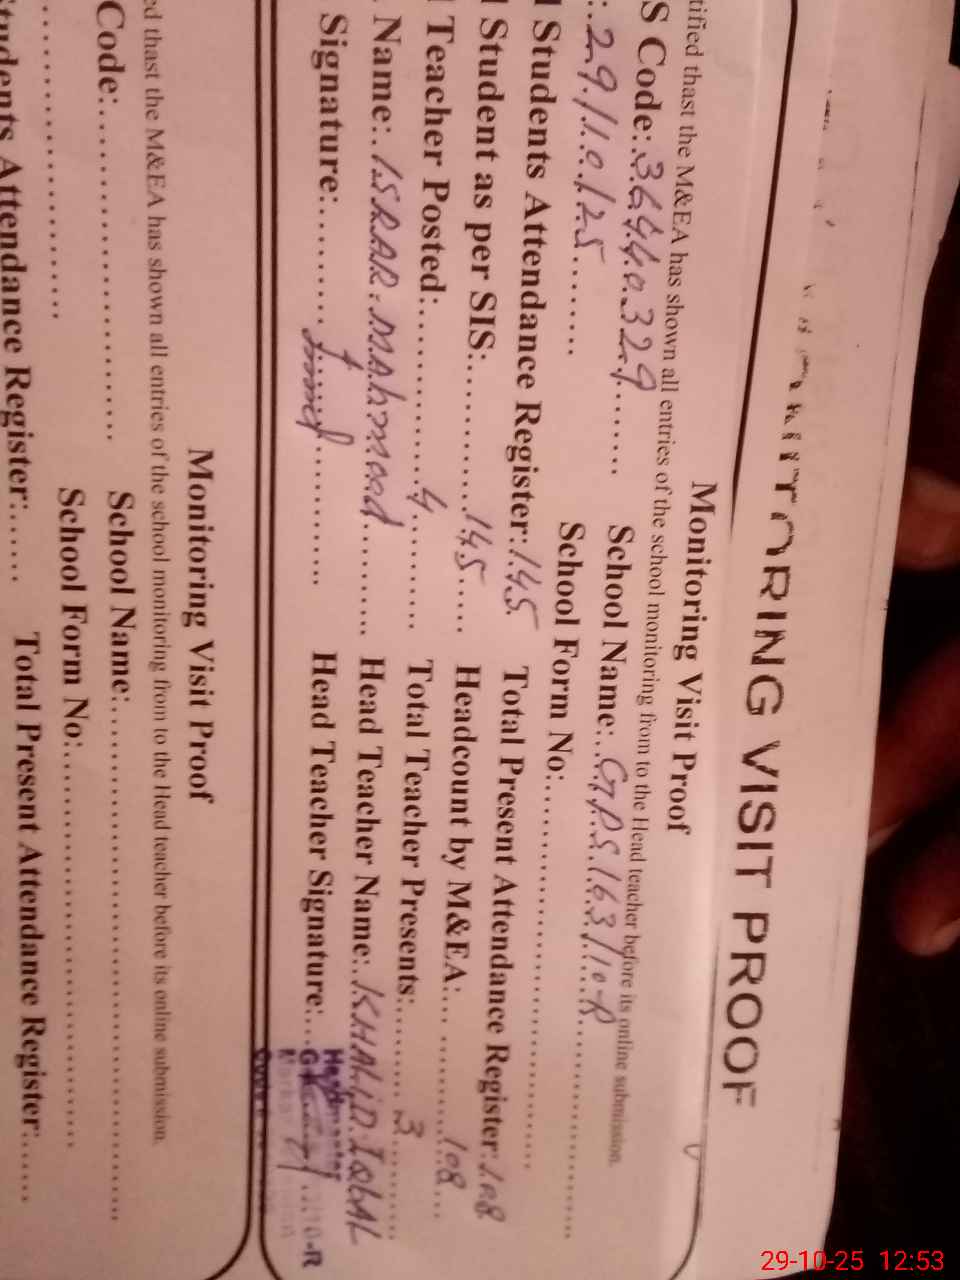 MONITORING VISIT PROOF
Monitoring Visit Proof
tified thast the M&EA has shown all entries of the school monitoring from to the Head teacher before its online submission.
S Code: 36440329 School Name: G.P.S. 163/10-R
: 29/10/25 School Form No:
Students Attendance Register: 145 Total Present Attendance Register: 108
Student as per SIS: 145 Headcount by M&EA: 108
Teacher Posted: 4 Total Teacher Presents: 3
Name: ISRAR Mahmood Head Teacher Name: KHALID IQBAL
Signature: Head Teacher Signature:
Headmaster
10-R
Monitoring Visit Proof
ed thast the M&EA has shown all entries of the school monitoring from to the Head teacher before its online submission.
Code: School Name:
School Form No:
Students Attendance Register: Total Present Attendance Register:
29-10-25 12:53